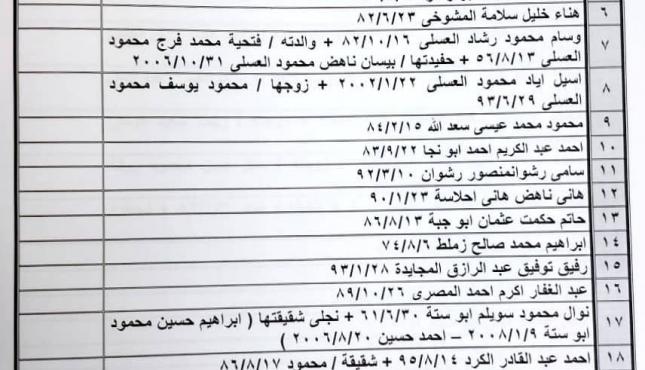 ٦ هناء خليل سلامة المشوخى ٨٢/٦/٢٣
٧ وسام محمود رشاد العسلى ٨٢/١٠/١٦ + والدته / فتحية محمد فرج محمود
العسلى ٥٦/٨/١٣ + حفيدتها / بيسان ناهض محمود العسلى ٢٠٠٦/١٠/٣١
٨ اسيل اياد محمود العسلى ٢٠٠٢/١/٢٢ + زوجها / محمود يوسف محمود
العسلى ٩٣/٦/٢٩
٩ محمود محمد عيسى سعد الله ٨٤/٢/١٥
١٠ احمد عبد الكريم احمد ابو نجا ٨٣/٩/٢٢
١١ سامى رشوانمنصور رشوان ٩٢/٣/١٠
١٢ هانى ناهض هانى احلاسة ٩٠/١/٢٣
١٣ حاتم حكمت عثمان ابو جبة ٨٦/٨/١٣
١٤ ابراهيم محمد صالح زملط ٧٤/٨/٦
١٥ رفيق توفيق عبد الرازق المجايدة ٩٣/١/٢٨
١٦ عبد الغفار اكرم احمد المصرى ٨٩/١٠/٢٦
١٧ نوال محمود سويلم ابو ستة ٦١/٦/٣٠ + نجلى شقيقتها ( ابراهيم حسين محمود
ابو ستة ٢٠٠٨/١/٩ – احمد حسين ٢٠٠٦/٨/٢٠ )
١٨ احمد عبد القادر الكرد ٩٥/٨/١٤ + شقيقة / محمود ٨٦/٨/١٧